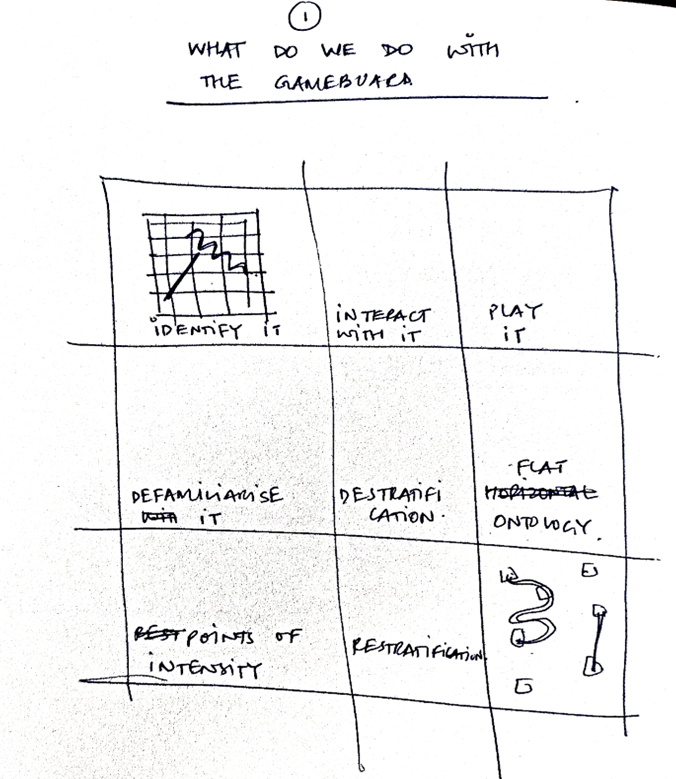 1
WHAT DO WE DO WITH
THE GAMEBOARD
IDENTIFY IT
INTERACT
WITH IT
PLAY
IT
DEFAMILIARISE
WITH IT
DESTRATIFI
CATION.
FLAT
HORIZONTAL
ONTOLOGY.
REST POINTS OF
INTENSITY
RESTRATIFICATION.